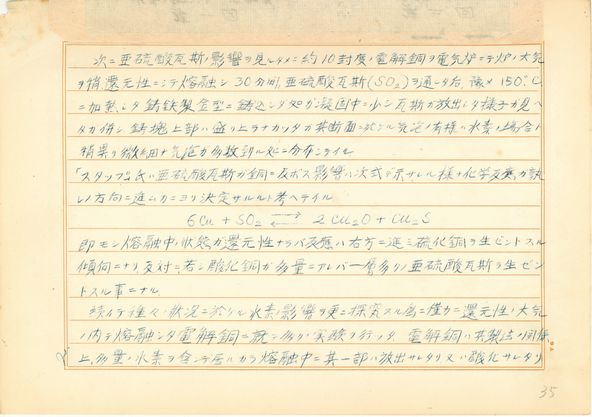 次ニ亜硫酸瓦斯ノ影響ヲ見ルタメニ約10封度ノ電解銅ヲ電気炉ニテ炉ノ大気
ヲ稍還元性ニシテ熔融シ30分間亜硫酸瓦斯(SO₂)ヲ通シタ后、豫メ150°C
ニ加熱シタ鋳鉄製金型ニ鋳込ンダ処ガ凝固中ニ少シ瓦斯ガ放出シタ様子ガ見ヘ
タガ併シ鋳塊上部ハ盛リ上ラナカツタガ其断面ニ於ケル気泡ノ有様ハ水素ノ場合ト
稍異リ微細ナ気泡ガ多数到ル処ニ分布シテイル
「スタップ」氏ハ亜硫酸瓦斯ガ銅ニ及ボス影響ハ次式デ示サレル様ナ化学反應ガ孰
レノ方向ニ進ムカニヨリ決定サルルト考ヘテイル
6Cu + SO₂ ⇄ 2Cu₂O + Cu₂S
即モシ熔融中ノ状態ガ還元性ナラバ反應ハ右方ニ進ミ硫化銅ヲ生ゼントスル
傾向ニナリ反対ニ若シ酸化銅ガ多量ニナレバ一層多クノ亜硫酸瓦斯ヲ生ゼン
トスル事ニナル
続イテ種々ノ状況ニ於ケル水素ノ影響ヲ更ニ探究スル為ニ僅カニ還元性ノ大気
ノ内デ熔融シタ電解銅ニ就テ多クノ実験ヲ行ツタ 電解銅ハ其製法ノ関係
上、多量ノ水素ヲ含ンデ居ルカラ熔融中ニ其一部ハ放出サレタリ又ハ酸化サレタリ
35